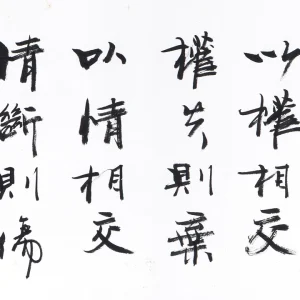 以權相交
權失則棄
以情相交
情斷則傷